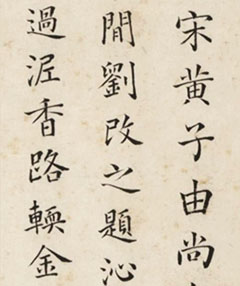 宋黄子由尚
閒劉改之題沁
過泥香路轉金